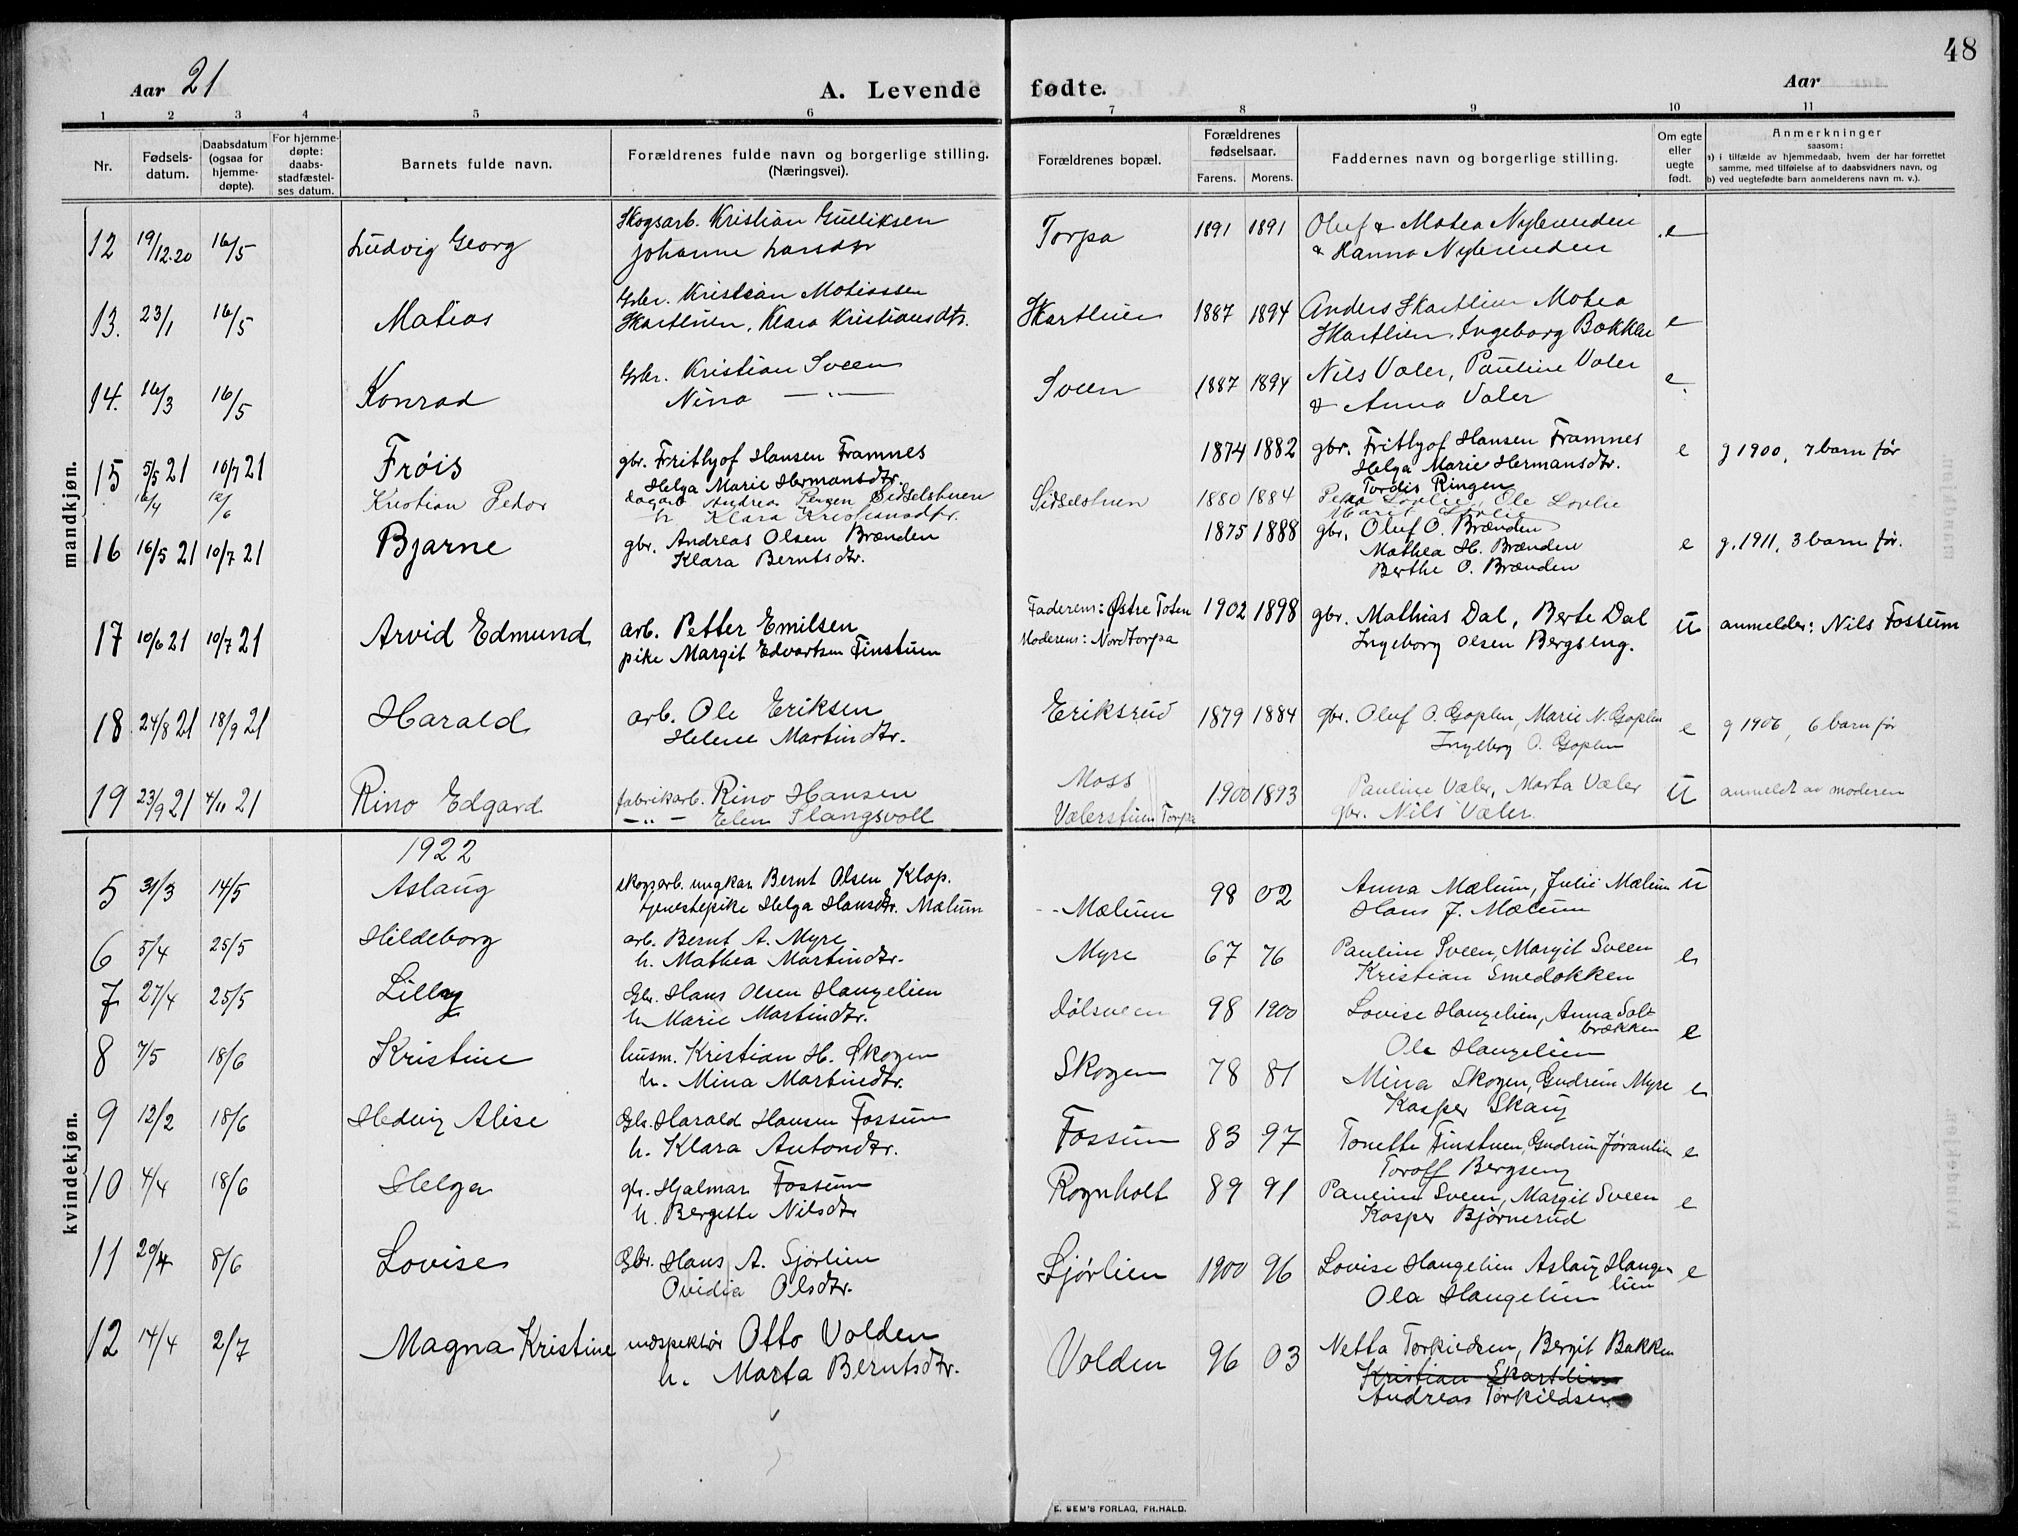 48
Aar 21
A. Levende fødte.
Aar
1 2 3 4 5 6 7 8 9 10 11
Nr.
Fødsels-datum.
Daabsdatum (ogsaa for hjemme-døpte).
For hjemme-døpte: daabs-stadfæstel-ses datum.
Barnets fulde navn.
Forældrenes fulde navn og borgerlige stilling. (Næringsvei).
Forældrenes bopæl.
Forældrenes fødselsaar.
Farens. Morens.
Faddernes navn og borgerlige stilling.
Om egte eller uegte født.
Anmerkninger
saasom:
a) i tilfælde av hjemmedaab, hvem der har forrettet samme, med tilføielse af to daabsvidners navn, og
b) ved uegtefødte barn anmelderens navn m. v.).
mandkjøn.
12 19/12.20 16/5 Ludvig Georg Skogsarb. Kristian Gulliksen Torpa 1891 1891 Oluf & Matea Nybrenden e
Johanne Larsdtr & Hanna Nybrenden
13. 23/1 16/5 Matias Gbr. Kristian Matiassen Skartlien 1887 1894 Anders Skartlien Matea e
Skartlien, Klara Kristiansdtr. Skartlien, Ingeborg Bakken
14. 16/3 16/5 Konrad Gbr. Kristian Sveen Sveen 1887 1894 Nils Valer, Pauline Valer e.
Nina —"— & Anna Valer
15 5/5 21 10/7 21 Frøis gbr. Frithjof Hansen Framnes 1874 1882 gbr. Frithjof Hansen Framnes e g 1900, 7 barn før
Helga Marie Hermansdtr. Helga Marie Hermansdtr.
Tordis Ringen
16/4 12/6 Kristian Peder dagarb Andreas Sidselstuen Sidselstuen 1880 1884 Løvlie, Ole Løvlie
h Klara Kristiansdtr. Marit Løvlie
16 16/5 21 10/7 21 Bjarne gbr. Andreas Olsen Brænden 1875 1888 gbr. Oluf O. Brænden e g. 1911, 3 barn før.
Klara Berntsdtr. Mathea H. Brænden
Berthe O. Brænden
17 10/6 21 10/7 21 Arvid Edmund arb. Petter Emilsen Faderens: Østre Toten 1902 1898 gbr. Mathias Dal, Berte Dal U anmelder: Nils Fossum
pike Margit Edvartsen Finstuen Moderens: Nordtorpa Ingeborg Olsen Bergseng.
18 24/8 21 18/9 21 Harald arb. Ole Eriksen Eriksrud 1879 1884 gbr. Oluf O. Goplen, Marie N. Goplen e g 1906, 6 barn før
Helene Martindtr. Ingeborg O. Goplen
19 23/9 21 4/11 21 Rino Edgard fabrikarb. Rino Hansen Moss 1900 1893 Pauline Væler, Marta Væler U anmeldt av moderen
—"— Elen Slangsvoll Vælerstuen Torpa gbr. Nils Væler.
kvindekjøn.
1922
5 31/3 14/5 Aslaug skogsarb. ungkar Bernt Olsen Klop. Mælum 98 02 Anna Mælum, Julie Mælum U
tjenestepike Helga Hansdtr. Mælum Hans J. Mælum
6 5/4 25/5 Hildeborg arb. Bernt A. Myre Myre 67 76 Pauline Sveen, Margit Sveen e
h. Mathea Martindtr. Kristian Smedøkken
7 27/4 25/5 Lilly Gbr. Hans Olsen Haugelien Dølsveen 98 1900 Lovise Haugelien, Anna Sol- e
h Marie Martindtr. brækken
Ole Haugelien
8 7/5 18/6 Kristine husm. Kristian H. Skogen Skogen 78 81 Mina Skogen, Gudrun Myre e
h. Mina Martindtr. Kasper Skaug
9 12/2 18/6 Hedvig Alise Gbr. Harald Hansen Fossum Fossum 83 97 Tonette Finstuen, Gudrun Jøranlien e
h. Klara Antondtr. Toroff Bergseng
10 4/4 18/6 Helga gbr. Hjalmar Fossum Rognholt 89 91 Pauline Sveen, Margit Sveen e
h. Bergitte Nilsdtr Kasper Bjørnerud
11 20/4 8/6 Lovise Gbr. Hans A. Sjørlien Sjørlien 1900 96 Lovise Haugelien Aslaug Hauge- e
Ovidia Olsdtr. lien
Ola Haugelien
12 14/4 2/7 Magna Kristine indspektør Otto Volden Volden 96 03 Netta Torkildsen, Bergit Bakken
h. Marta Berntsdtr. Kristian Skartlien
Andreas Torkildsen
E. SEM'S FORLAG, FR.HALD.